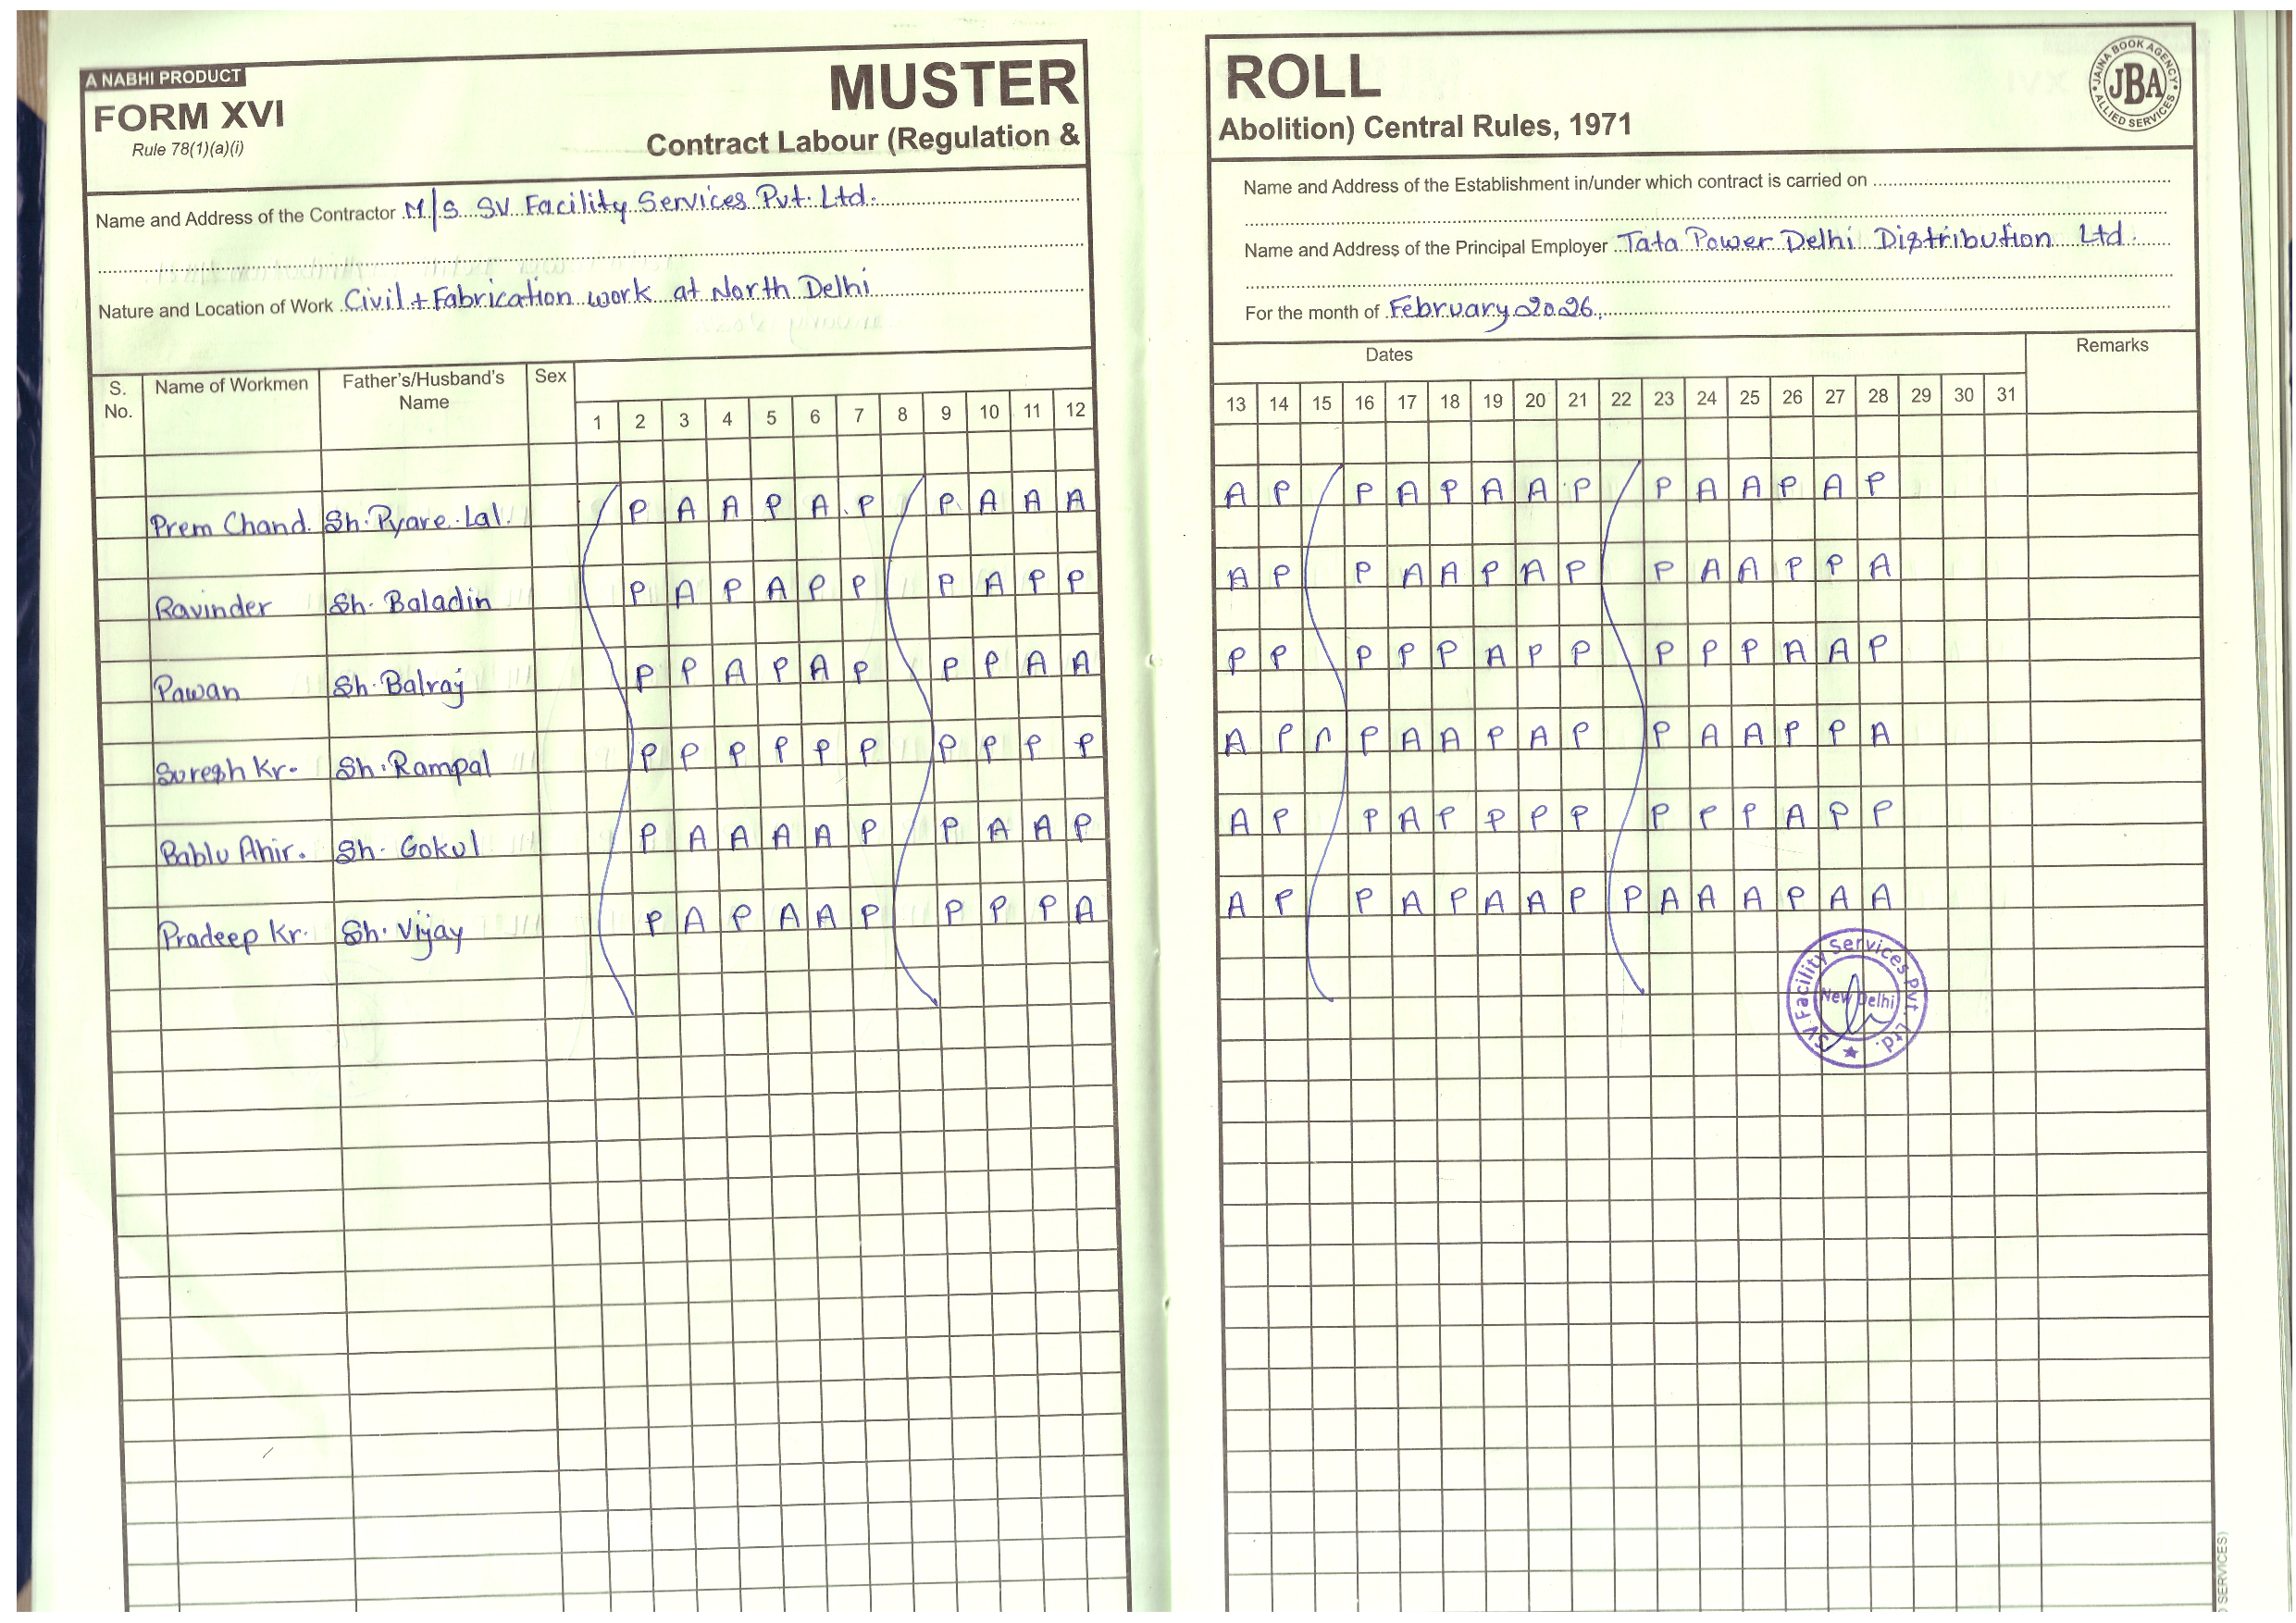 A NABHI PRODUCT
FORM XVI
Rule 78(1)(a)(i)
MUSTER ROLL
Contract Labour (Regulation & Abolition) Central Rules, 1971
JAINA BOOK AGENCY
JBA
ALLIED SERVICES
Name and Address of the Contractor M/S SV Facility Services Pvt. Ltd.
Nature and Location of Work Civil + Fabrication work at North Delhi
Name and Address of the Establishment in/under which contract is carried on
Name and Address of the Principal Employer Tata Power Delhi Distribution Ltd.
For the month of February 2026.
S. No. Name of Workmen Father's/Husband's Name Sex Dates Remarks
1 2 3 4 5 6 7 8 9 10 11 12 13 14 15 16 17 18 19 20 21 22 23 24 25 26 27 28 29 30 31
Prem Chand. Sh. Pyare Lal. P A A P A P P A A A A P P A P A A P P A A P A P
Ravinder Sh. Baladin P A P A P P P A P P A P P A A P A P P A A P P A
Pawan Sh. Balraj P P A P A P P P A A P P P P P A P P P P P A A P
Suresh Kr. Sh. Rampal P P P P P P P P P P A P P A A P A P P A A P P A
Bablu Ahir. Sh. Gokul P A A A A P P A A P A P P A P P P P P P P A P P
Pradeep Kr. Sh. Vijay P A P A A P P P P A A P P A P A A P P A A A P A A
SV Facility Services Pvt. Ltd.
New Delhi
SERVICES)